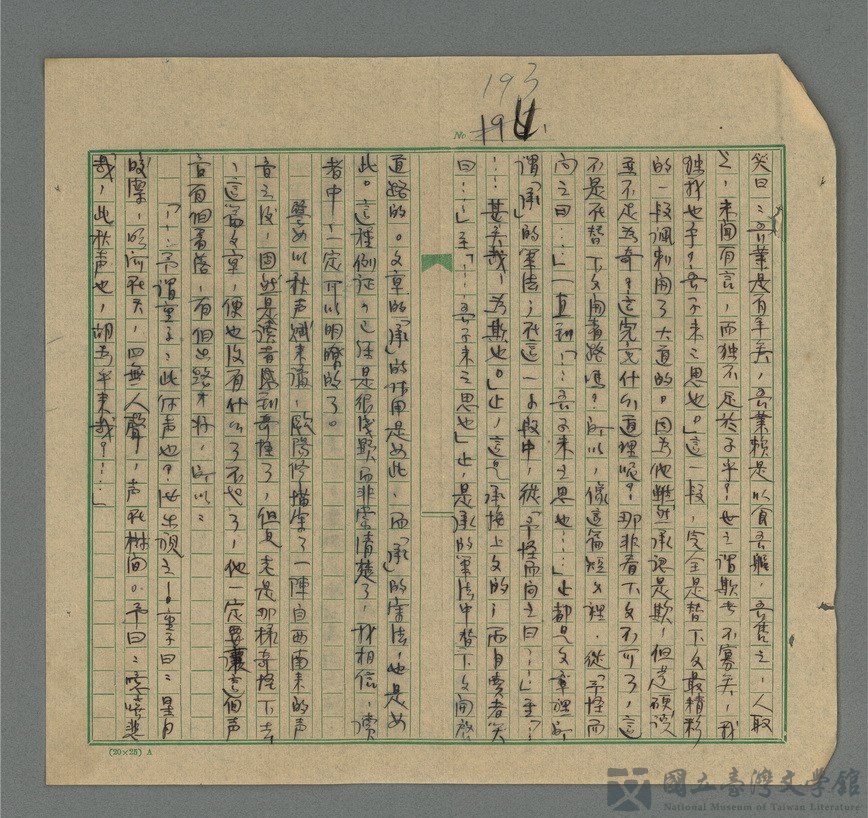 193
No 194.
笑曰：吾業是有年矣，吾業賴是以食吾軀，吾售之，人取
之，未聞有言，而独不足於子乎？世之謂欺者不寡矣，我
独我也乎？吾子未之思也。」這一段，完全是替下文最精彩
的一段諷刺開了大道的。因為他雖然承認是欺，但是硬說
並不足為奇？這究竟什么道理呢？那非看下文不可了，這
不是在替下文開着路嗎？所以，像這篇短文裡，從「予怪而
问之曰……」一直到「…吾子未之思也……」止都是文章理所
謂「承」的筆法；在這一小段中，從「予怪而问之曰……」至「…
……甚矣哉，为欺也。」止，這是承接上文的；而自賣者笑
曰……」至「……吾子未之思也」止，是承的筆法中替下文開啓
道路的。文章的「承」的作用是如此，而「承」的寫法，也是如
此。這種例证，已经是很浅顯而非常清楚了，我相信，讀
者中，一定可以明瞭的了。
譬如以秋声赋来講，歐陽修描寫了一陣自西南来的声
音之後，固然是讀者感到奇怪了，但是老是那樣奇怪下去
，這篇文章，便也没有什么了不起了，他一定要讓這個声
音有個着落，有個出路才好，所以：
「…予謂童子：此何声也？汝出視之！童子曰：星月
皎潔，明河在天，四無人聲，声在樹間。予曰：噫嘻悲
哉，此秋声也，胡為乎来哉？……」
(20×25) A
國立臺灣文學館
National Museum of Taiwan Literature